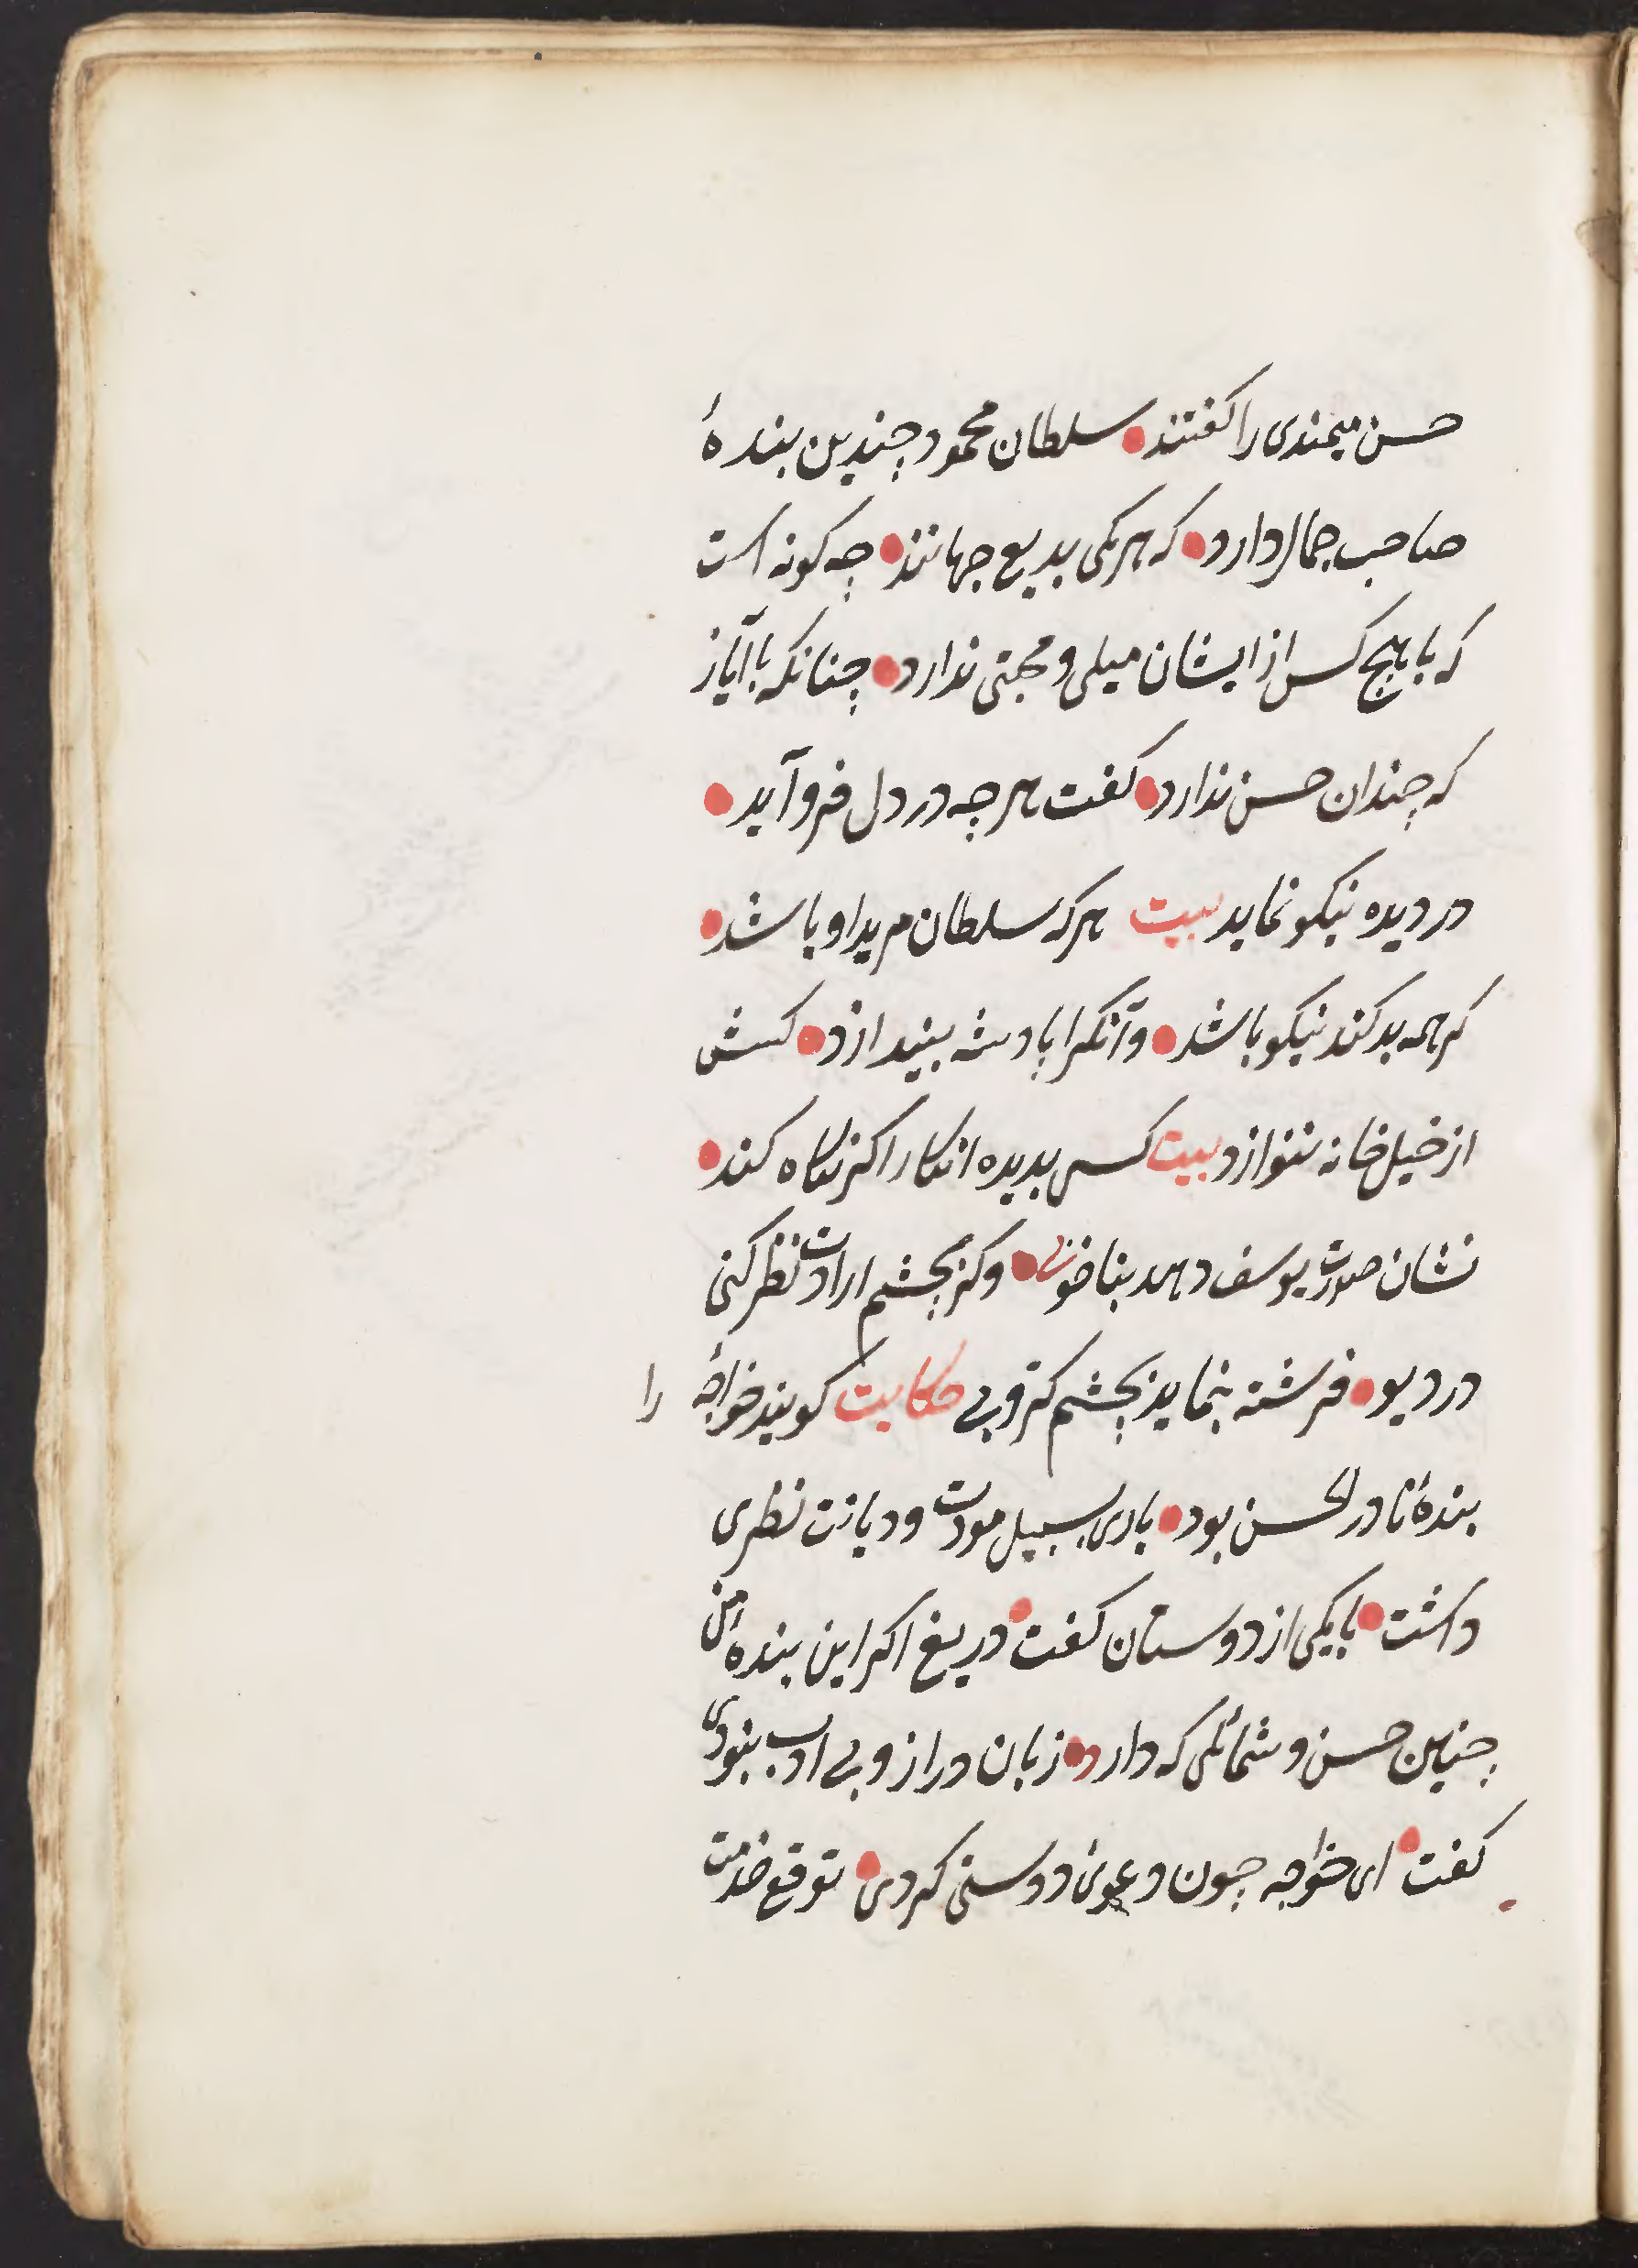 حسن میمندی را کفتند سلطان محمود چندین بندهٔ
صاحب جمال دارد که هر یکی بدیع جهانند چه کونه است
که با هیچ کس از ایشان میلی و محبتی ندارد چنانکه با آیاز
که چندان حسن ندارد کفت هر چه در دل فرو آید
در دیده نیکو نماید بیت هر که سلطان مرید او باشد
کر همه بد کند نیکو باشد وآنکرا پادشه بیندازد کسش
از خیل خانه ننوازد بیت کسی بدیده انکار اکر نکاه کند
نشان صورت یوسف دهد بناخوبی وکر بچشم ارادت نظر کنی
در دیو فرشته بنماید بچشم کروبی حکایت کویند خواجهٔ را
بندهٔ نادر الحسن بود باوی بسبیل مودت و دیانت نظری
داشت با یکی از دوستان کفت دریغ اکر این بنده من
چنین حسن و شمائلی که دارد زبان دراز و بی ادب نبودی
کفت ای خواجه چون دعوئ دوستی کردی توقع خدمت